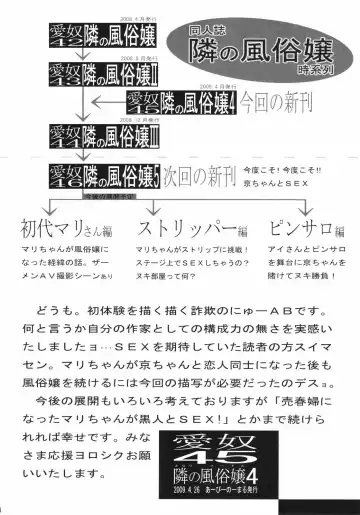 2008.6月発行
同人誌
愛奴42 隣の風俗嬢
隣の風俗嬢
時系列
2008.8月発行
愛奴43 隣の風俗嬢Ⅱ
2009.4月発行
愛奴45 隣の風俗嬢4 今回の新刊
2008.12月発行
愛奴44 隣の風俗嬢Ⅲ
愛奴46 隣の風俗嬢5 次回の新刊
今度こそ!今度こそ!!
京ちゃんとSEX
今後の展開予定
初代マリさん編
マリちゃんが風俗嬢に
なった経緯の話。ザー
メンAV撮影シーンあり
ストリッパー編
マリちゃんがストリップに挑戦!
ステージ上でSEXしちゃうの?
ヌキ部屋って何?
ピンサロ編
アイさんとピンサロ
を舞台に京ちゃんを
賭けてヌキ勝負!
どうも。初体験を描く描く詐欺のにゅーABです。
何と言うか自分の作家としての構成力の無さを実感い
たしましたョ…SEXを期待していた読者の方スイマ
セン。マリちゃんが京ちゃんと恋人同士になった後も
風俗嬢を続けるには今回の描写が必要だったのデスョ。
今後の展開もいろいろ考えておりますが「売春婦に
なったマリちゃんが黒人とSEX!」とかまで続けら
れれば幸せです。みな
さま応援ヨロシクお願
いいたします。
愛奴
45
隣の風俗嬢4
2009.4.26 あーびーのーまる発行